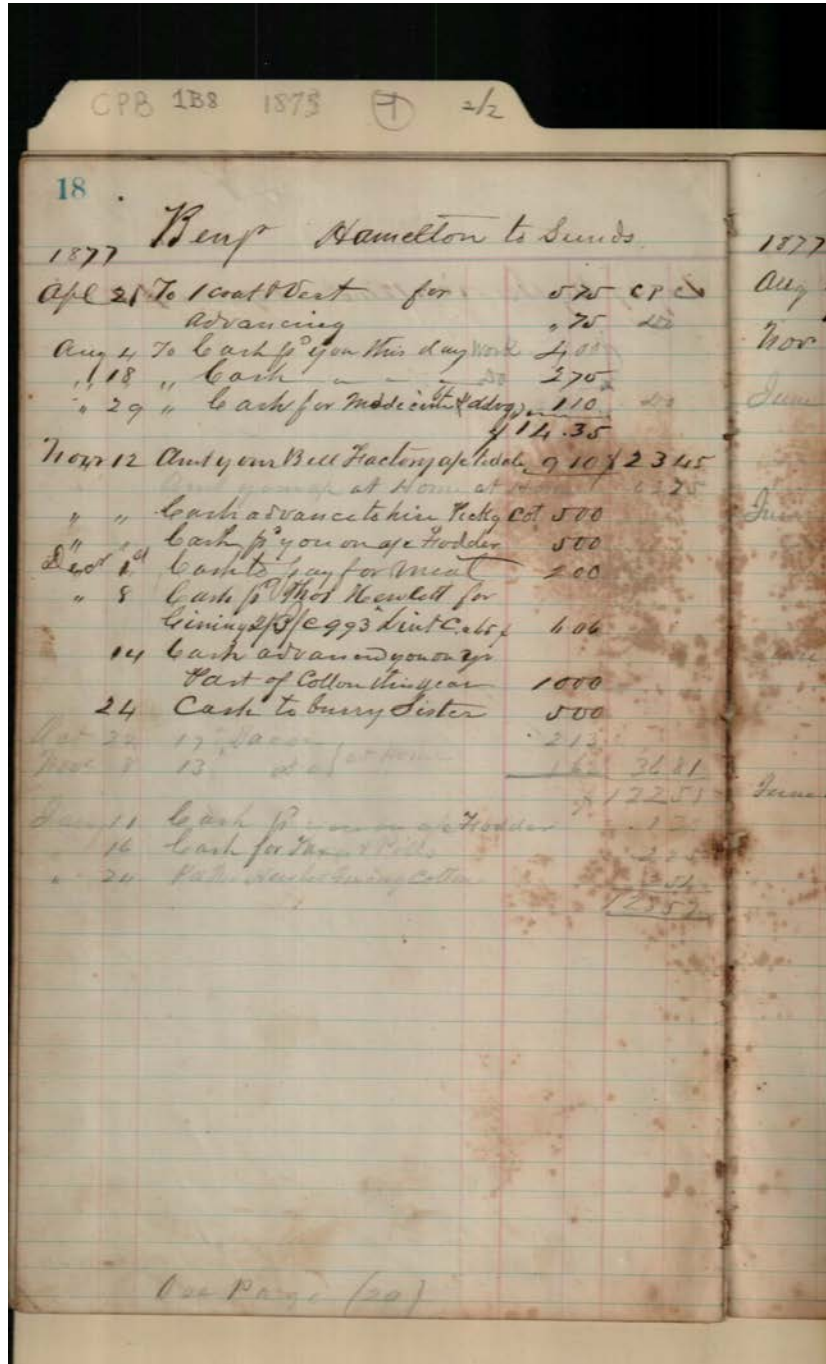 CPB 1B8 1875 1 2/2
18
Benj Hamelton to Sunds.
1877
1877
Apl 21 To 1 coat & Vest for 575 CPC
Aug
advancing " 75 do
Aug 4 To Cash pd you this day Work 400
Nov
" 18 " Cash " " " do 275
" 29 " Cash for Medicine & 110 do
June
$14.35
Novr 12 Amt your Bill Factory a/c todate 910 $2345
at Home at 6225
" " Cash advance to hire Picky Cot 500
" " Cash pd you on a/c Fodder 500
Decr 1st Cash to pay for Meat 200
" 8 Cash pd Thos Hewlett for
Gining 2/3/c 993 Lint C. 606
14 Cash advanced you on yr
Part of Cotton this year 1000
24 Cash to burry Sister 500
22 17 213
Nov 8 13 do at Home 162 3681
$12251
June
Jany 11 Cash pd on a/c Fodder
16 Cash for & Pills
" Gining Cotton
See Page (20)